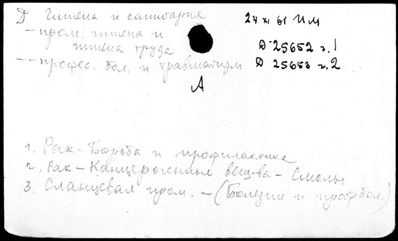 Д Гигиена и санитария 24 XI 61 ИМ
— пром. гигиена и
гигиена труда Д-25652 г.1
— професс. бол. и травматизм Д 25653 г.2
А
1. Рак - Борьба и профилактика
2. Рак - Канцерогенные вещ-ва - Смолы
3. Сланцевая пром. - (Болезни и профбол.)